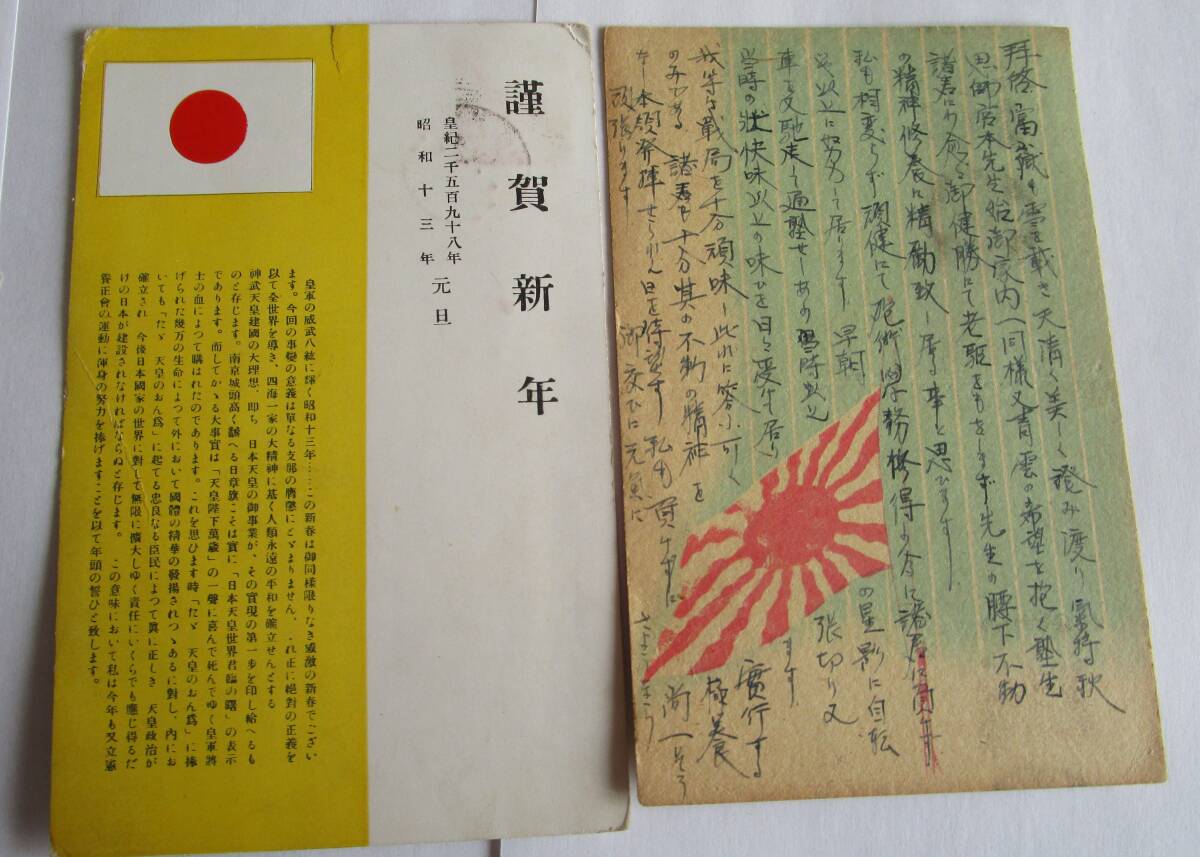 謹賀新年
皇紀二千五百九十八年
昭和十三年 元旦
皇軍の威武八紘に輝く昭和十三年……この新春は御同樣限りなき感激の新春でござい
ます。今回の事變の意義は單なる支那の膺懲にとゞまりません、これ正に絕對の正義を
以て全世界を導き、四海一家の大精神に基く人類永遠の平和を確立せんとする
神武天皇建國の大理想、即ち 日本天皇の御事業が、その實現の第一步を印し給へるも
のと存じます。南京城頭高く飜へる日章旗こそは實に「日本天皇世界君臨の曙」の表示
であります。而してかゝる大事實は「天皇陛下萬歲」の一聲に喜んで死んでゆく皇軍將
士の血によつて購はれたのであります。これを思ひます時「たゞ 天皇のおん爲」に捧
げられた幾万の生命によつて外において國體の精華の發揚されつゝあるに對し、內にお
いても「たゞ 天皇のおん爲」に起てる忠良なる臣民によつて眞に正しき 天皇政治が
確立され 今後日本國家の世界に對して無限に擴大しゆく責任にいくらでも應じ得るだ
けの日本が建設されなければならぬと存じます。 この意味において私は今年も又立憲
養正會の運動に渾身の努力を捧げますことを以て年頭の誓ひと致します。
拜啓 富嶽も雪を戴き天清く美しく澄み渡り氣持秋
恩師宮本先生始御家内一同樣又青雲の希望を抱く塾生
諸君にわ愈々御健勝にて老軀をもをきず先生の膝下不動
の精神修養に精勵致し居る事と思ひます
私も相変らず頑健にて砲術學務修得の
以上に努力して居ります 早朝の星影に自転
車を又馳走して通塾せしあの當時以上 張切り又
當時の壯快味以上の味ひを日々受け居り ます
我等は戰局を十分頑味し此れに答ふ可く 實行する
のみである 諸君も十分其の不動の精神を 極養
し本領発揮せられん日を待望す 私も負けずに 尚一そう
頑張ります 御交ひに元氣に さようなら